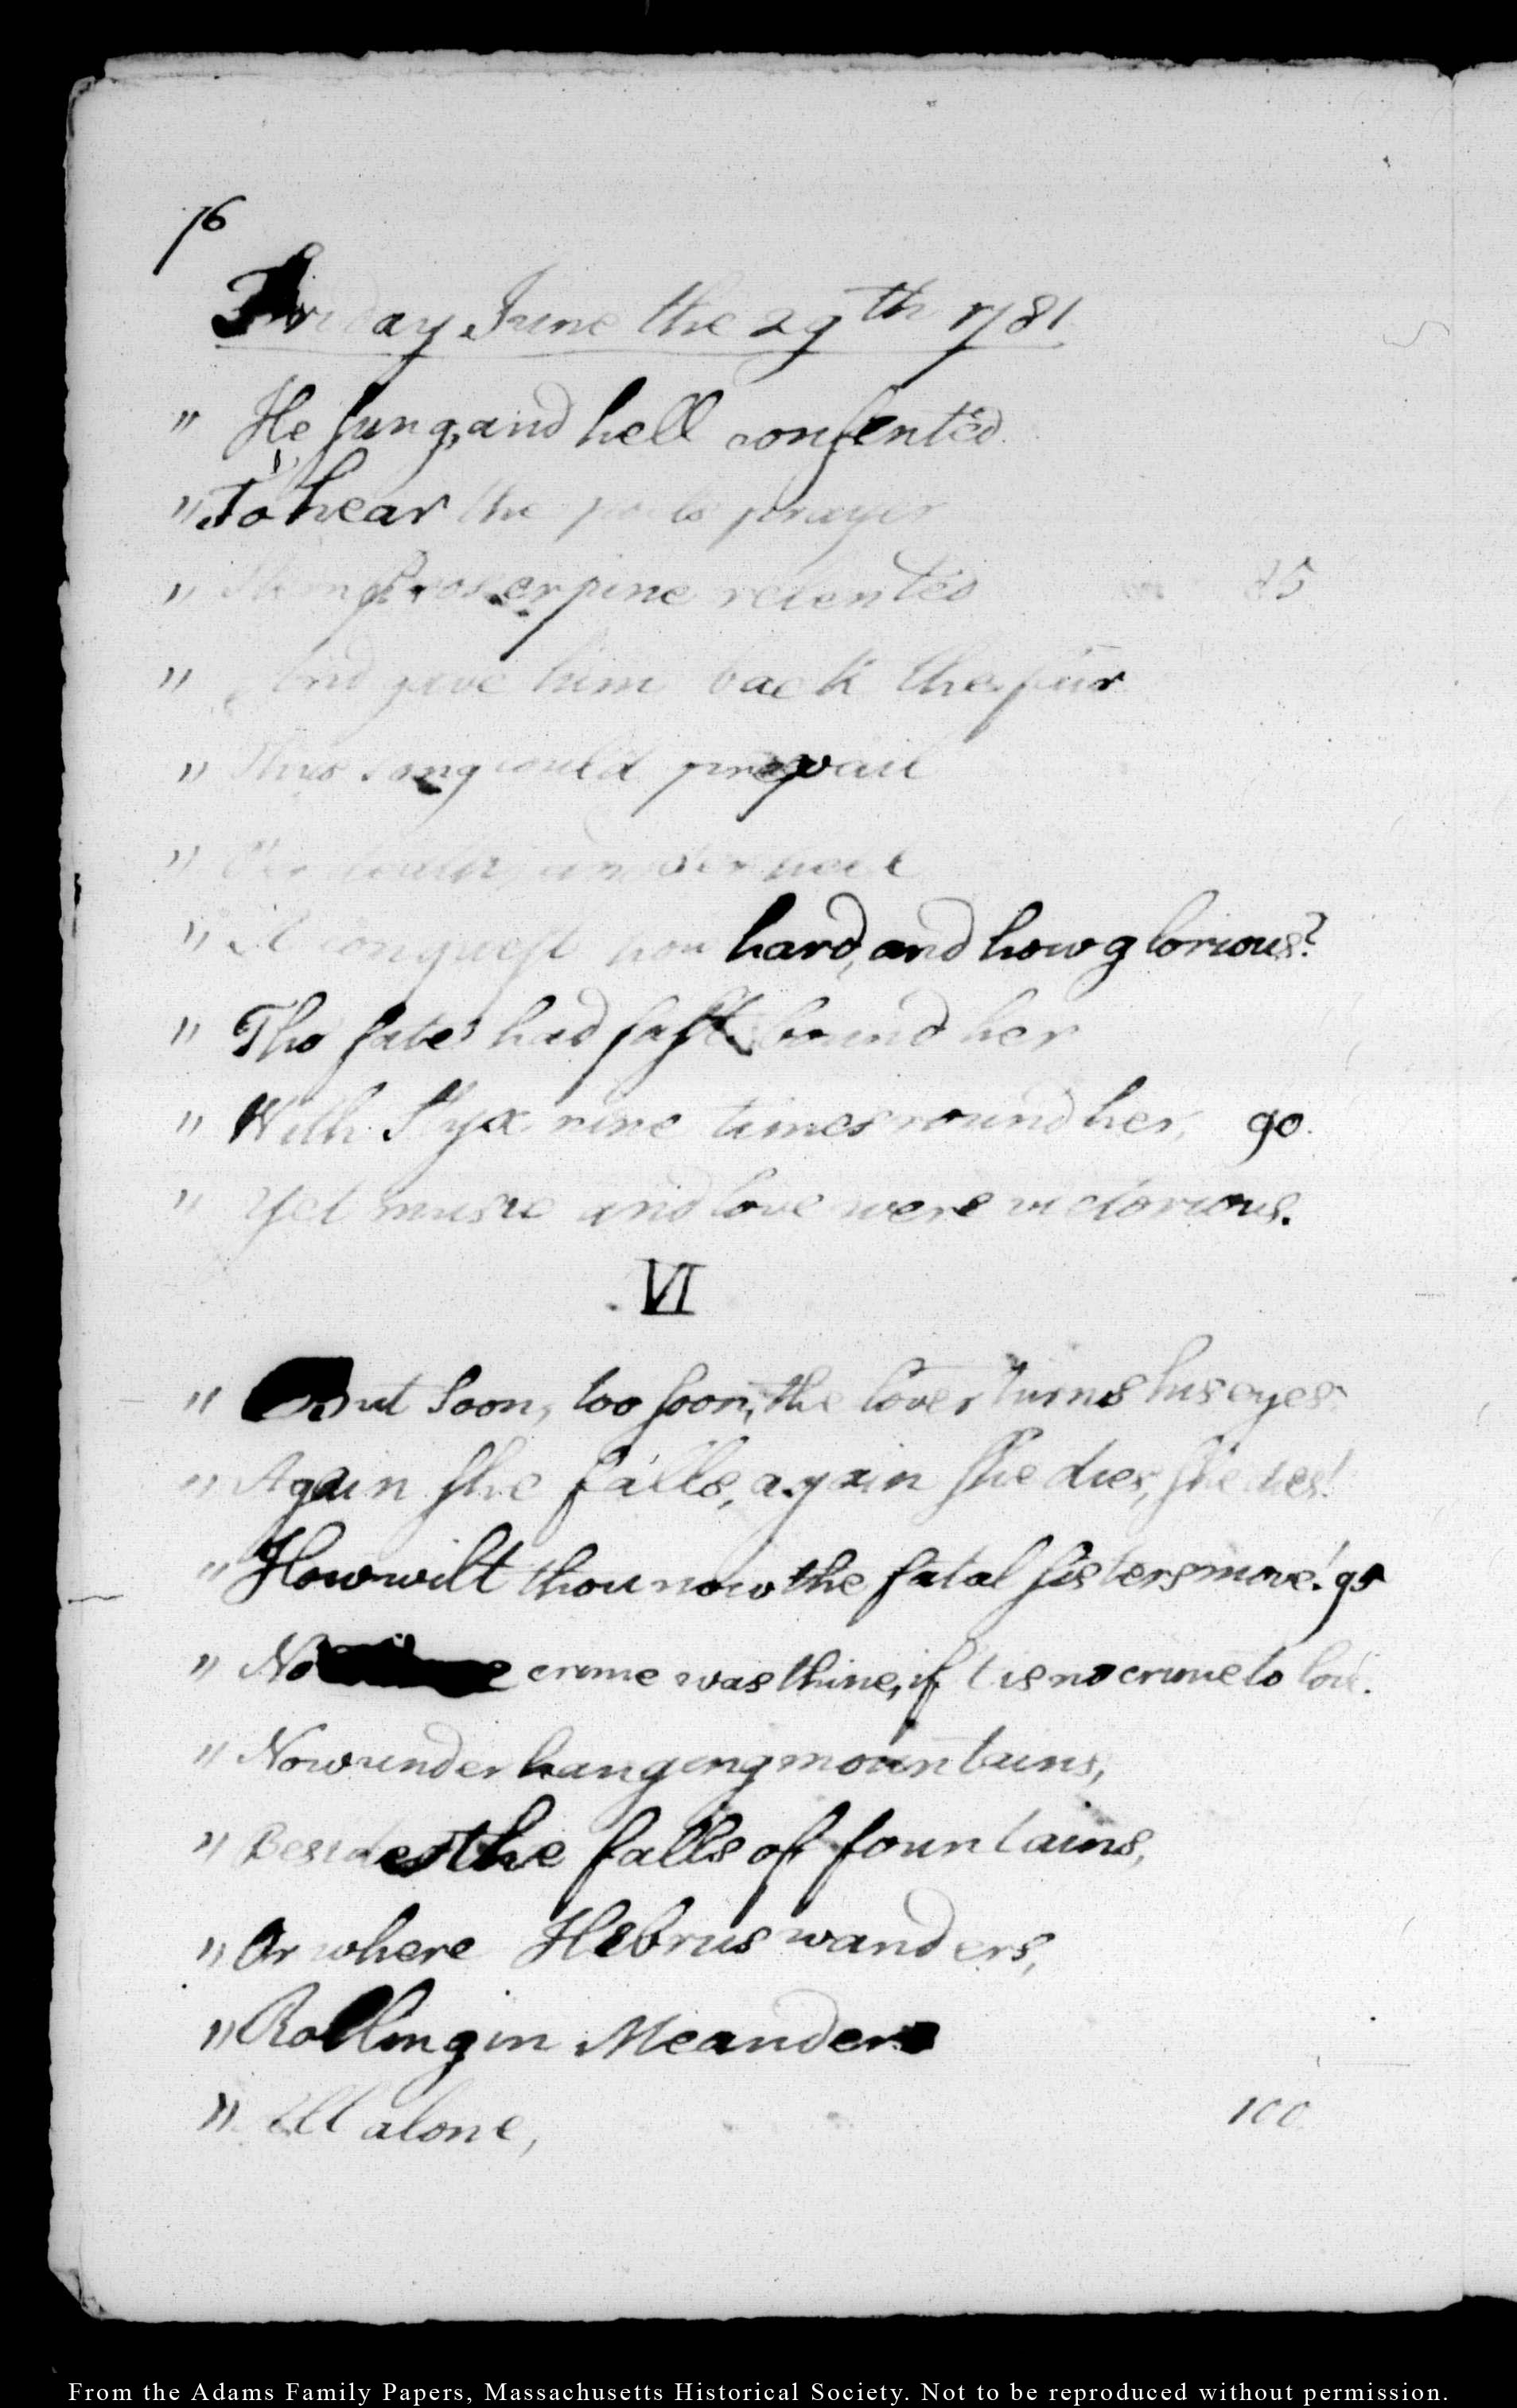 76
Friday June the 29th 1781
" He sung, and hell consented
" To hear the poets prayer
" Proserpine relented 85
" And gave him back the fair
" Thus song could prevail
" O'er death, and o'er hell
" A conquest how hard, and how glorious?
" Tho' fate had fast bound her
" With Styx nine times round her, 90.
" Yet music and love were victorious.
VI
" But soon, too soon, the lover turns his eyes:
" Again she falls, again she dies, she dies!
" How wilt thou now the fatal sisters move! 95
" No crime was thine, if t is no crime to love.
" Now under hanging mountains,
" Besides the falls of fountains,
" Or where Hebrus wanders,
" Rolling in Meanders
" All alone, 100
From the Adams Family Papers, Massachusetts Historical Society. Not to be reproduced without permission.